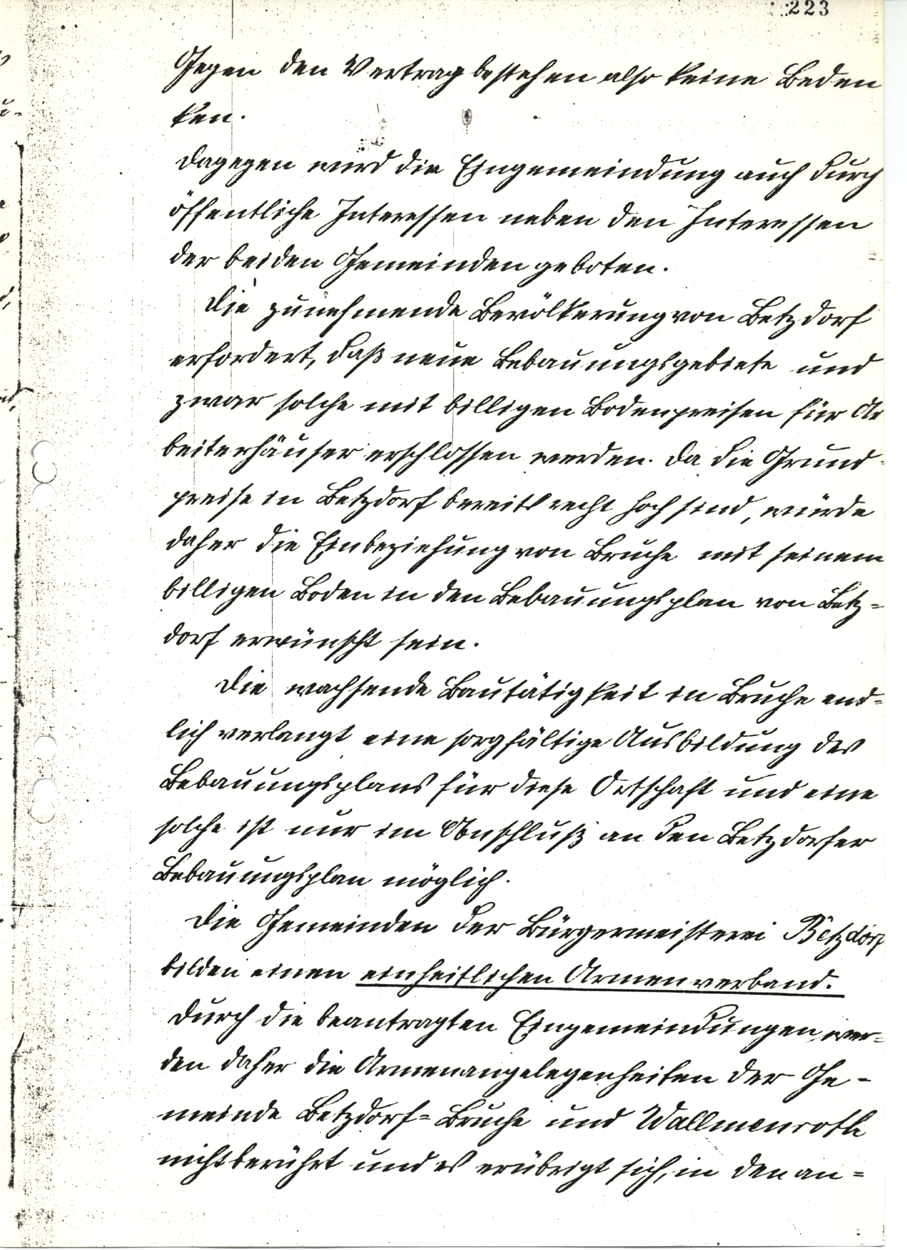 223
Gegen den Vertrag bestehen also keine Beden
ken.
Dagegen wird die Eingemeindung auch durch
öffentliche Interessen neben den Interessen
der beiden Gemeinden geboten.
Die zunehmende Bevölkerung von Betzdorf
erfordert, daß neue Bebauungsgebiete und
zwar solche mit billigen Bodenpreisen für Ar
beiterhäuser erschlossen werden. Da die Grund-
preise in Betzdorf bereits recht hoch sind, würde
daher die Einbeziehung von Bruche mit seinem
billigen Boden in den Bebauungsplan von Betz=
dorf erwünscht sein.
Die wachsende Bautätigkeit in Bruche end=
lich verlangt eine sorgfältige Ausbildung des
Bebauungsplans für diese Ortschaft und eine
solche ist nur im Anschluß an den Betzdorfer
Bebauungsplan möglich.
Die Gemeinden der Bürgermeisterei Betzdorf
bilden einen einheitlichen Armenverband.
Durch die beantragten Eingemeindungen wer=
den daher die Armenangelegenheiten der Ge=
meinde Betzdorf= Bruche und Wallmenroth
nicht berührt und es erübrigt sich, in den an=